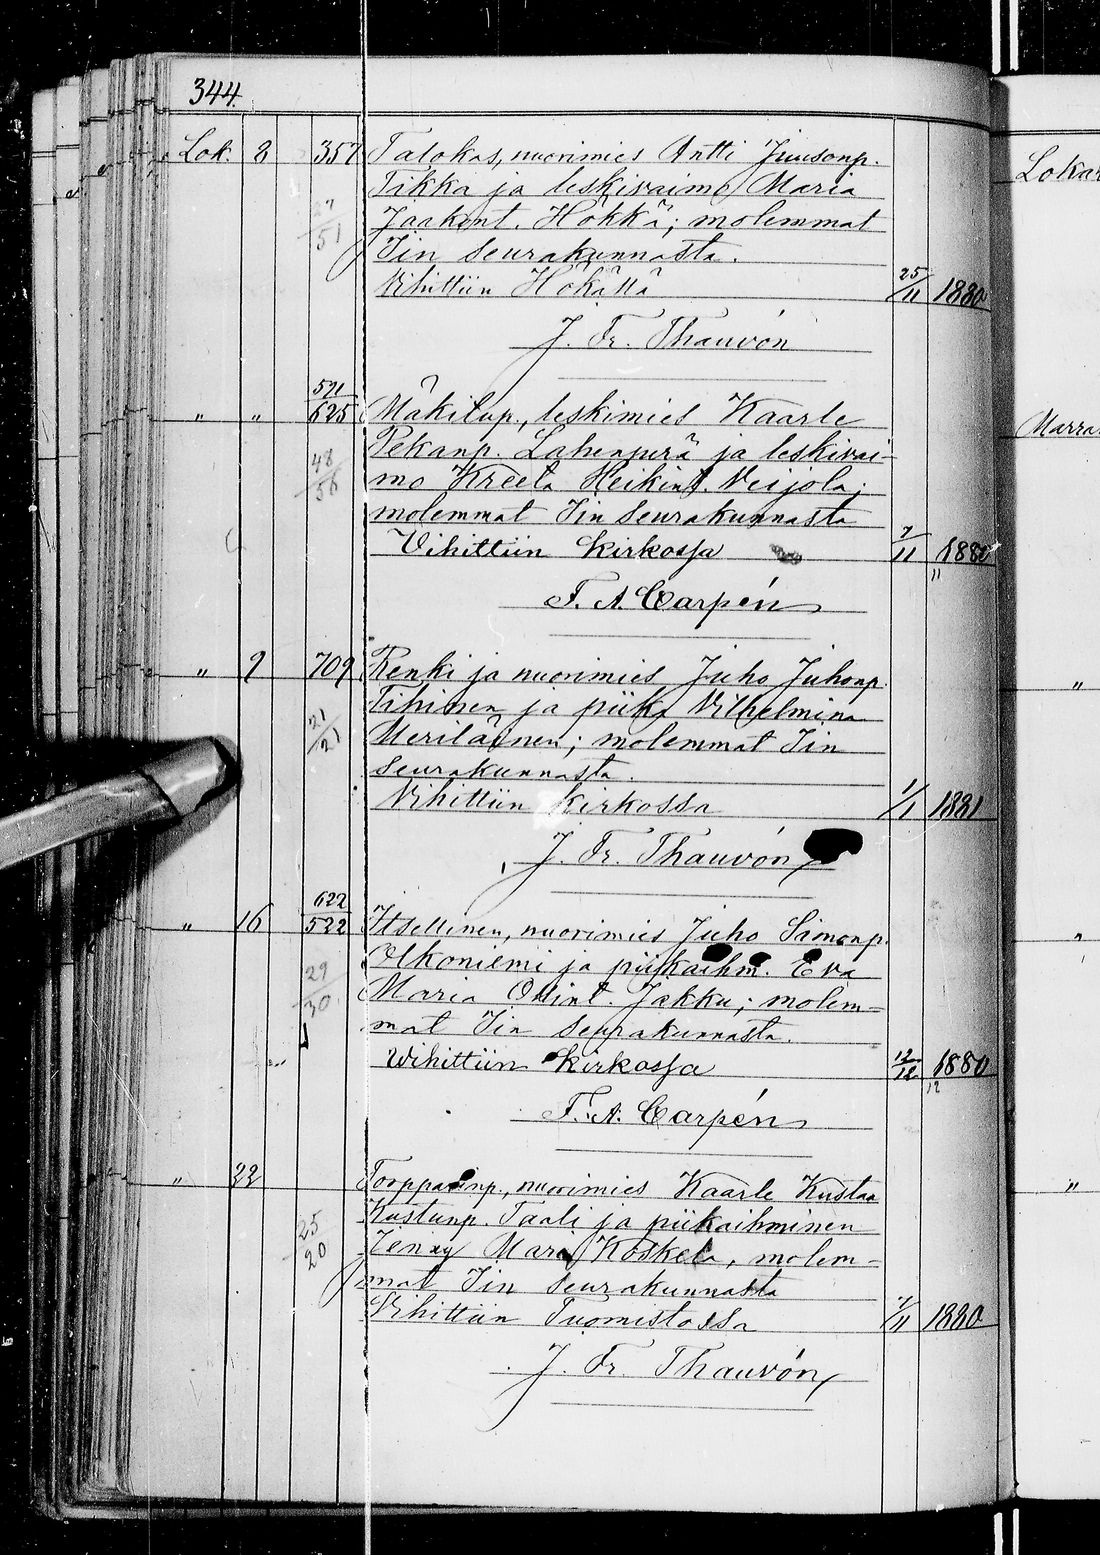 344
Lok. 8 357 Talokas, nuorimies Antti Juusonp.
Tikka ja leskivaimo Maria
27/51 Jaakont. Hökkä; molemmat
Iin seurakunnasta.
Vihittiin Hökällä 25/11 1880
J. Fr. Thauvón
521
" " 625 Mäkitup., leskimies Kaarle
Pekanp. Lahenperä ja leskivai-
48/56 mo Kreeta Heikint. Veijola;
molemmat Iin seurakunnasta
Vihittiin kirkossa 7/11 1880
"
F. A. Carpén
" 9 709 Renki ja nuorimies Juho Juhonp.
Tihinen ja piika Vilhelmina
21/21 Meriläinen; molemmat Iin
seurakunnasta.
Vihittiin kirkossa 1/1 1881
J. Fr. Thauvón
622
" 16 522 Itsellinen, nuorimies Juho Simonp.
Olkoniemi ja piikaihm. Eva
29/30 Maria Ollint. Jakku; molem-
mat Iin seurakunnasta.
Wihittiin kirkossa 12/12 1880
12
F. A. Carpén
" 22 Torpparinp., nuorimies Kaarle Kustaa
Kustunp. Taali ja piikaihminen
25/20 Jenny Maria Koskela, molem-
mat Iin seurakunnasta
Vihittiin Tuomistossa 7/11 1880
J. Fr. Thauvón
Lokar
Marra
"
"
"